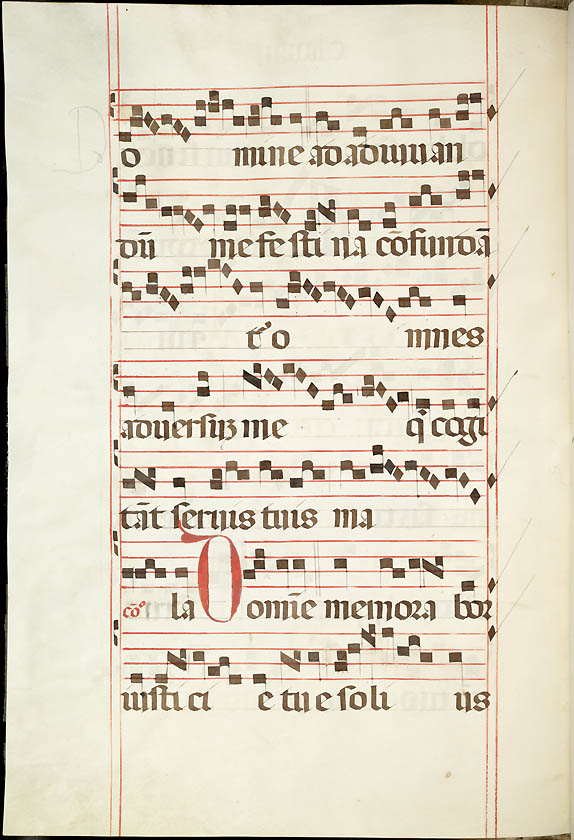 o mine ad adiuuan
dū me festi na cōfundā
t᷑ o mnes
aduersuȝ me q̇ cogi
tāt seruis tuis ma
cōᵒ la Domīe memora bor
iusti ci e tu e soli us